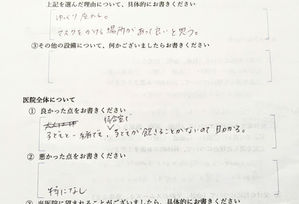 上記を選んだ理由について、具体的にお書きください
ゆっくり座れる。
マスクをかける場所があって良いと思う。
③その他の設備について、何かございましたらお書きください
医院全体について
① 良かった点をお書きください
待合室で
子どもと一緒でも、子どもが飽きることがないので助かる。
② 悪かった点をお書きください
特になし
③ 当医院に望まれることがございましたら、具体的にお書きください